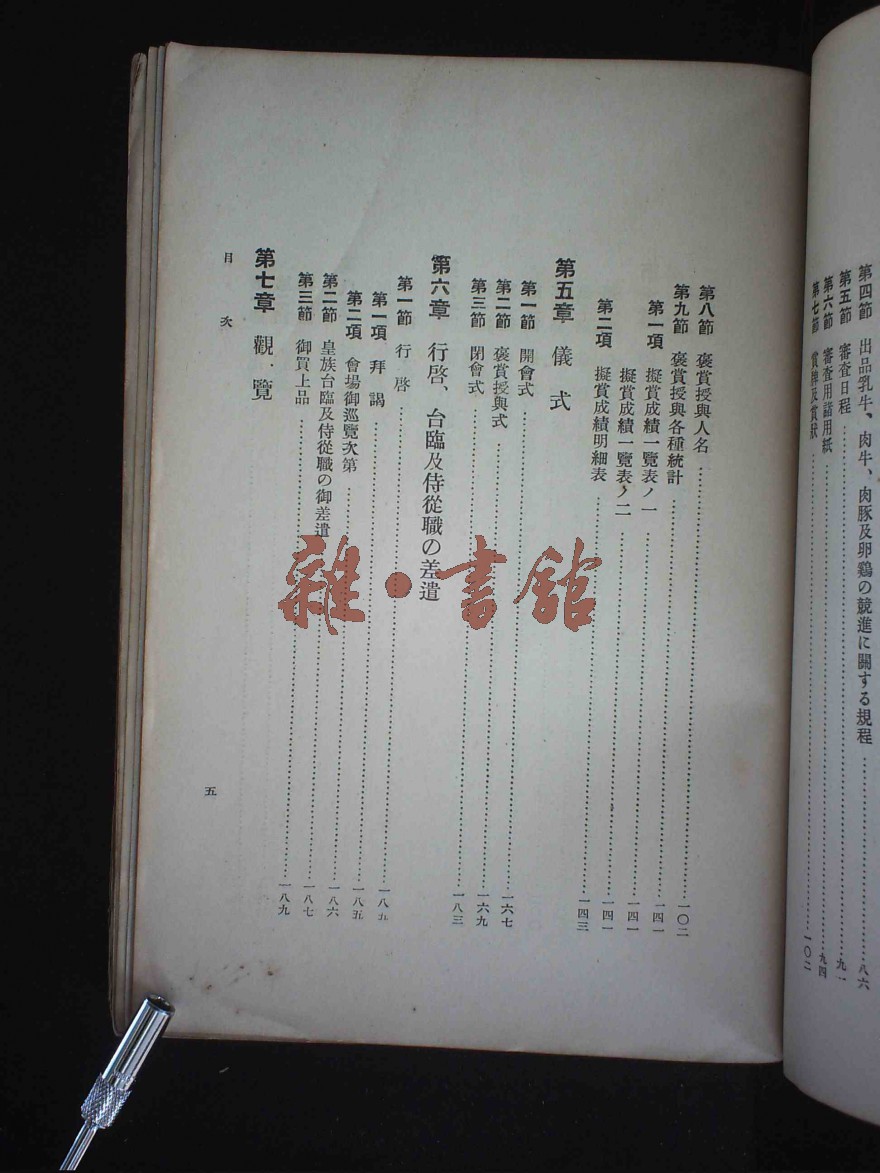 第四節 出品乳牛、肉牛、肉豚及卵鷄の競進に關する規程……八六
第五節 審査日程……九一
第六節 審査用諸用紙……九四
第七節 賞牌及賞狀……一〇二
第八節 褒賞授與人名……一〇二
第九節 褒賞授與各種統計
第一項 擬賞成績一覽表ノ一……一四一
擬賞成績一覽表ノ二……一四一
第二項 擬賞成績明細表……一四三
第五章 儀式
第一節 開會式……一六七
第二節 褒賞授與式……一六九
第三節 閉會式……一八三
第六章 行啓、台臨及侍從職の差遣
第一節 行啓
第一項 拜謁……一八五
第二項 會場御巡覽次第……一八五
第二節 皇族台臨及侍從職の御差遣……一八六
第三節 御買上品……一八七
第七章 觀覽……一八九
目次
五
雜·書館